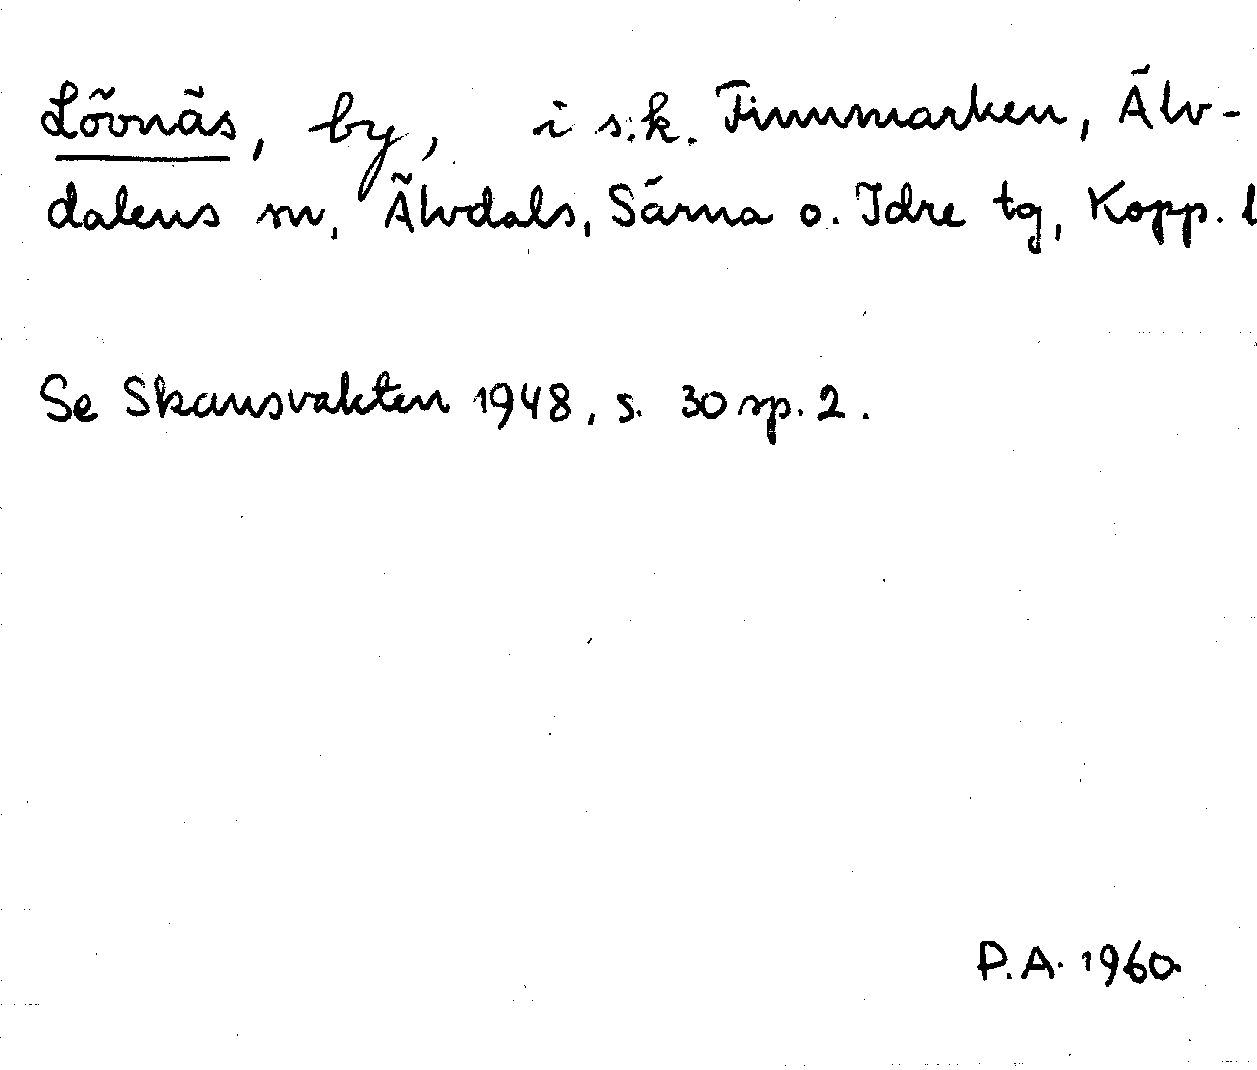 Lövnäs, by, i s.k. Finnmarken, Älv-
dalens sn, Älvdals, Särna o. Idre tg, Kopp. l
Se Skansvakten 1948, s. 30 sp. 2.
P.A. 1960